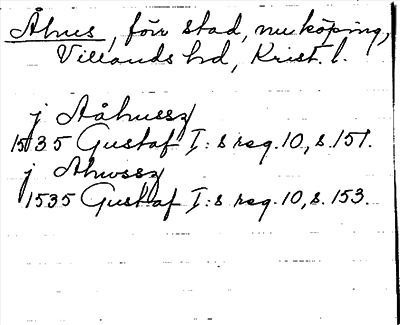 Åhus, förr stad, nu köping,
Villands hd, Krist. l.
j Aåhussz
1535 Gustaf I:s reg. 10, s. 151.
j Ahwssz
1535 Gustaf I:s reg. 10, s. 153.